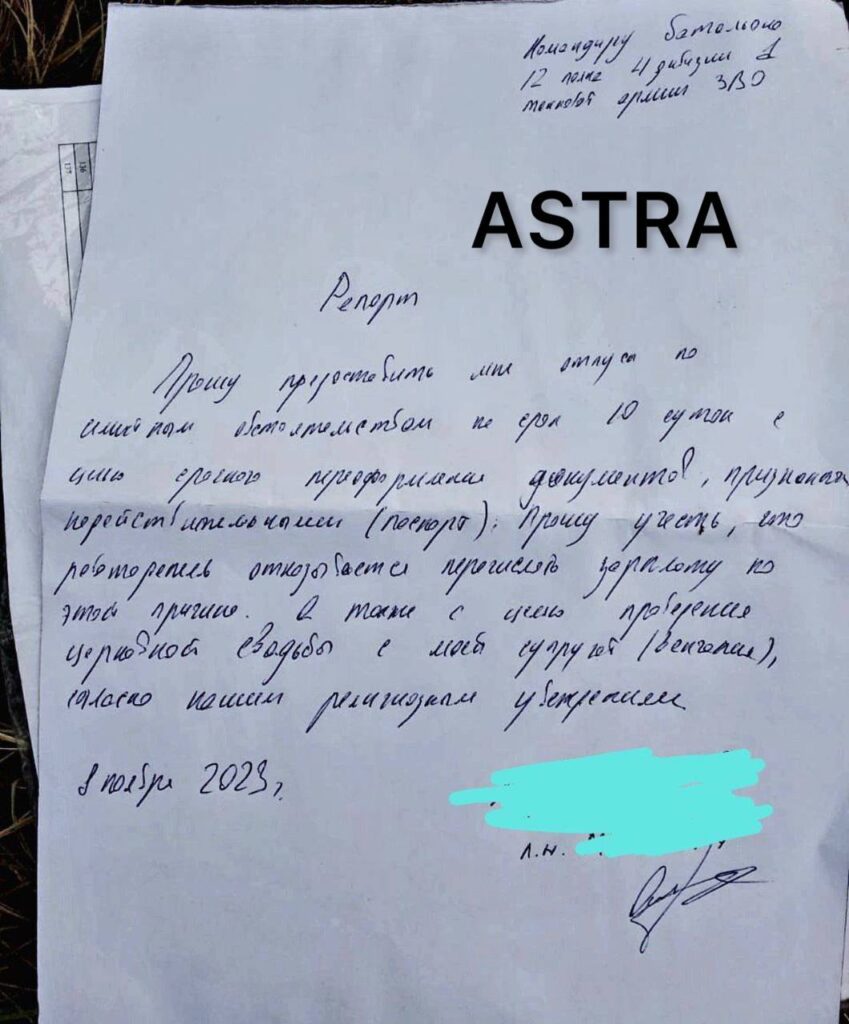 Командиру батальона
12 полка 4 дивизии 1
танковой армии ЗВО
ASTRA
Рапорт
Прошу предоставить мне отпуск по
семейным обстоятельствам на срок 10 суток с
целью срочного переоформления документов, признанных
недействительными (паспорт). Прошу учесть, что
работодатель отказывается перечислять зарплату по
этой причине. А также с целью проведения
церковной свадьбы с моей супругой (венчание),
согласно нашим религиозным убеждениям
8 ноября 2023 г.
Л.Н.
137
136